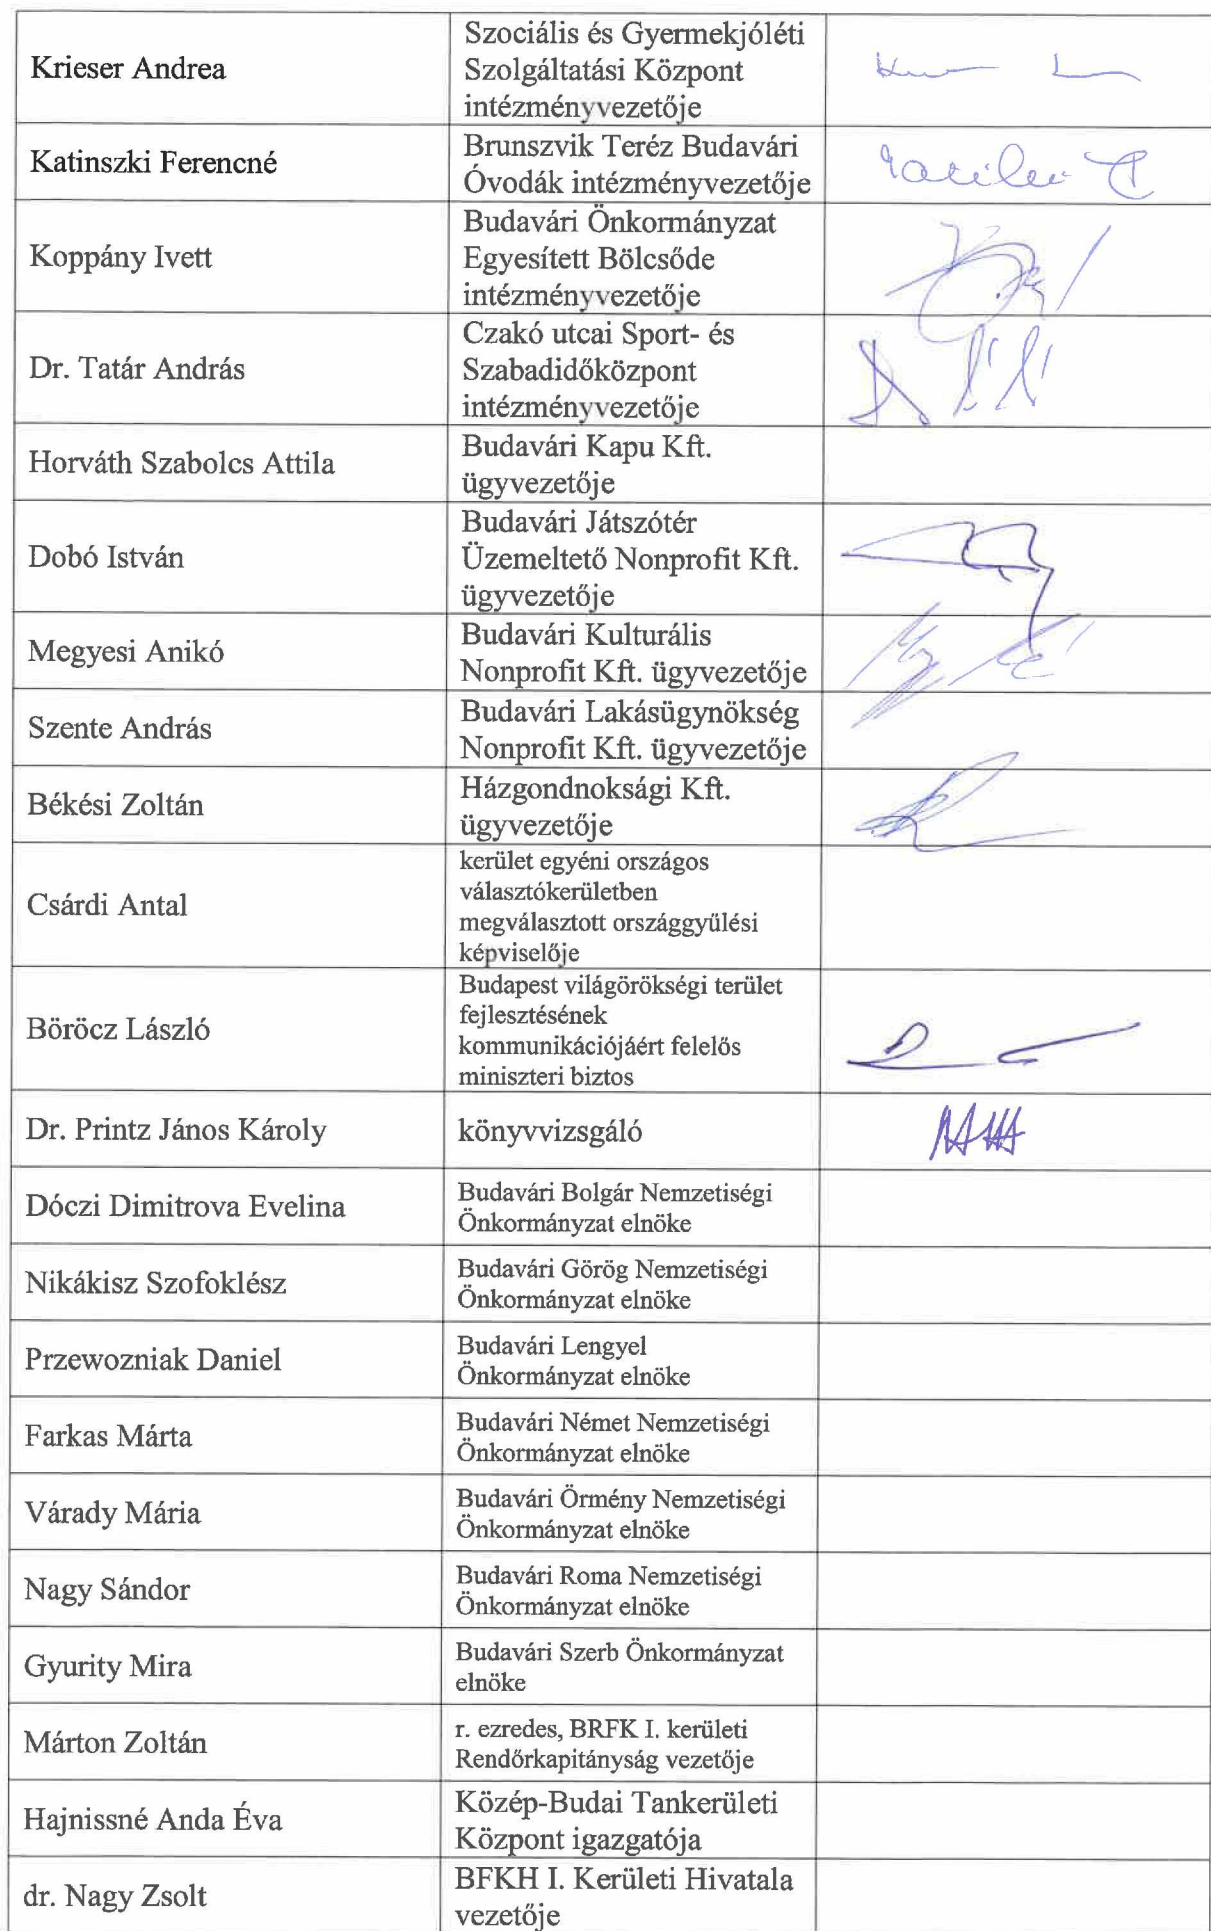 Krieser Andrea
Szociális és Gyermekjóléti
Szolgáltatási Központ
intézményvezetője
Katinszki Ferencné
Brunszvik Teréz Budavári
Óvodák intézményvezetője
Koppány Ivett
Budavári Önkormányzat
Egyesített Bölcsőde
intézményvezetője
Dr. Tatár András
Czakó utcai Sport- és
Szabadidőközpont
intézményvezetője
Horváth Szabolcs Attila
Budavári Kapu Kft.
ügyvezetője
Dobó István
Budavári Játszótér
Üzemeltető Nonprofit Kft.
ügyvezetője
Megyesi Anikó
Budavári Kulturális
Nonprofit Kft. ügyvezetője
Szente András
Budavári Lakásügynökség
Nonprofit Kft. ügyvezetője
Békési Zoltán
Házgondnoksági Kft.
ügyvezetője
Csárdi Antal
kerület egyéni országos
választókerületben
megválasztott országgyűlési
képviselője
Böröcz László
Budapest világörökségi terület
fejlesztésének
kommunikációjáért felelős
miniszteri biztos
Dr. Printz János Károly
könyvvizsgáló
Dóczi Dimitrova Evelina
Budavári Bolgár Nemzetiségi
Önkormányzat elnöke
Nikákisz Szofoklész
Budavári Görög Nemzetiségi
Önkormányzat elnöke
Przewozniak Daniel
Budavári Lengyel
Önkormányzat elnöke
Farkas Márta
Budavári Német Nemzetiségi
Önkormányzat elnöke
Várady Mária
Budavári Örmény Nemzetiségi
Önkormányzat elnöke
Nagy Sándor
Budavári Roma Nemzetiségi
Önkormányzat elnöke
Gyurity Mira
Budavári Szerb Önkormányzat
elnöke
Márton Zoltán
r. ezredes, BRFK I. kerületi
Rendőrkapitányság vezetője
Hajnissné Anda Éva
Közép-Budai Tankerületi
Központ igazgatója
dr. Nagy Zsolt
BFKH I. Kerületi Hivatala
vezetője